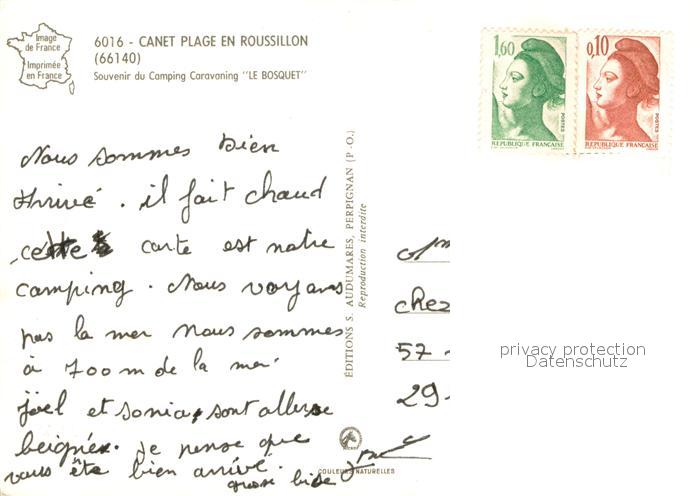 Image
de France
Imprimée
en France
6016 - CANET PLAGE EN ROUSSILLON
(66140)
Souvenir du Camping Caravaning "LE BOSQUET"
1,60
POSTES
REPUBLIQUE FRANÇAISE
0,10
POSTES
REPUBLIQUE FRANÇAISE
Nous sommes bien
Arrivé. il fait chaud
cette carte est notre
camping. Nous voyons
pas la mer nous sommes
à 700m de la mer
joël et Sonia, sont aller se
beignée. Je pense que
vous ête bien arrivé.
grosse bise
ÉDITIONS S. AUDUMARES, PERPIGNAN (P.-O.)
Reproduction interdite
COULEURS NATURELLES
chez
57
29
privacy protection
Datenschutz